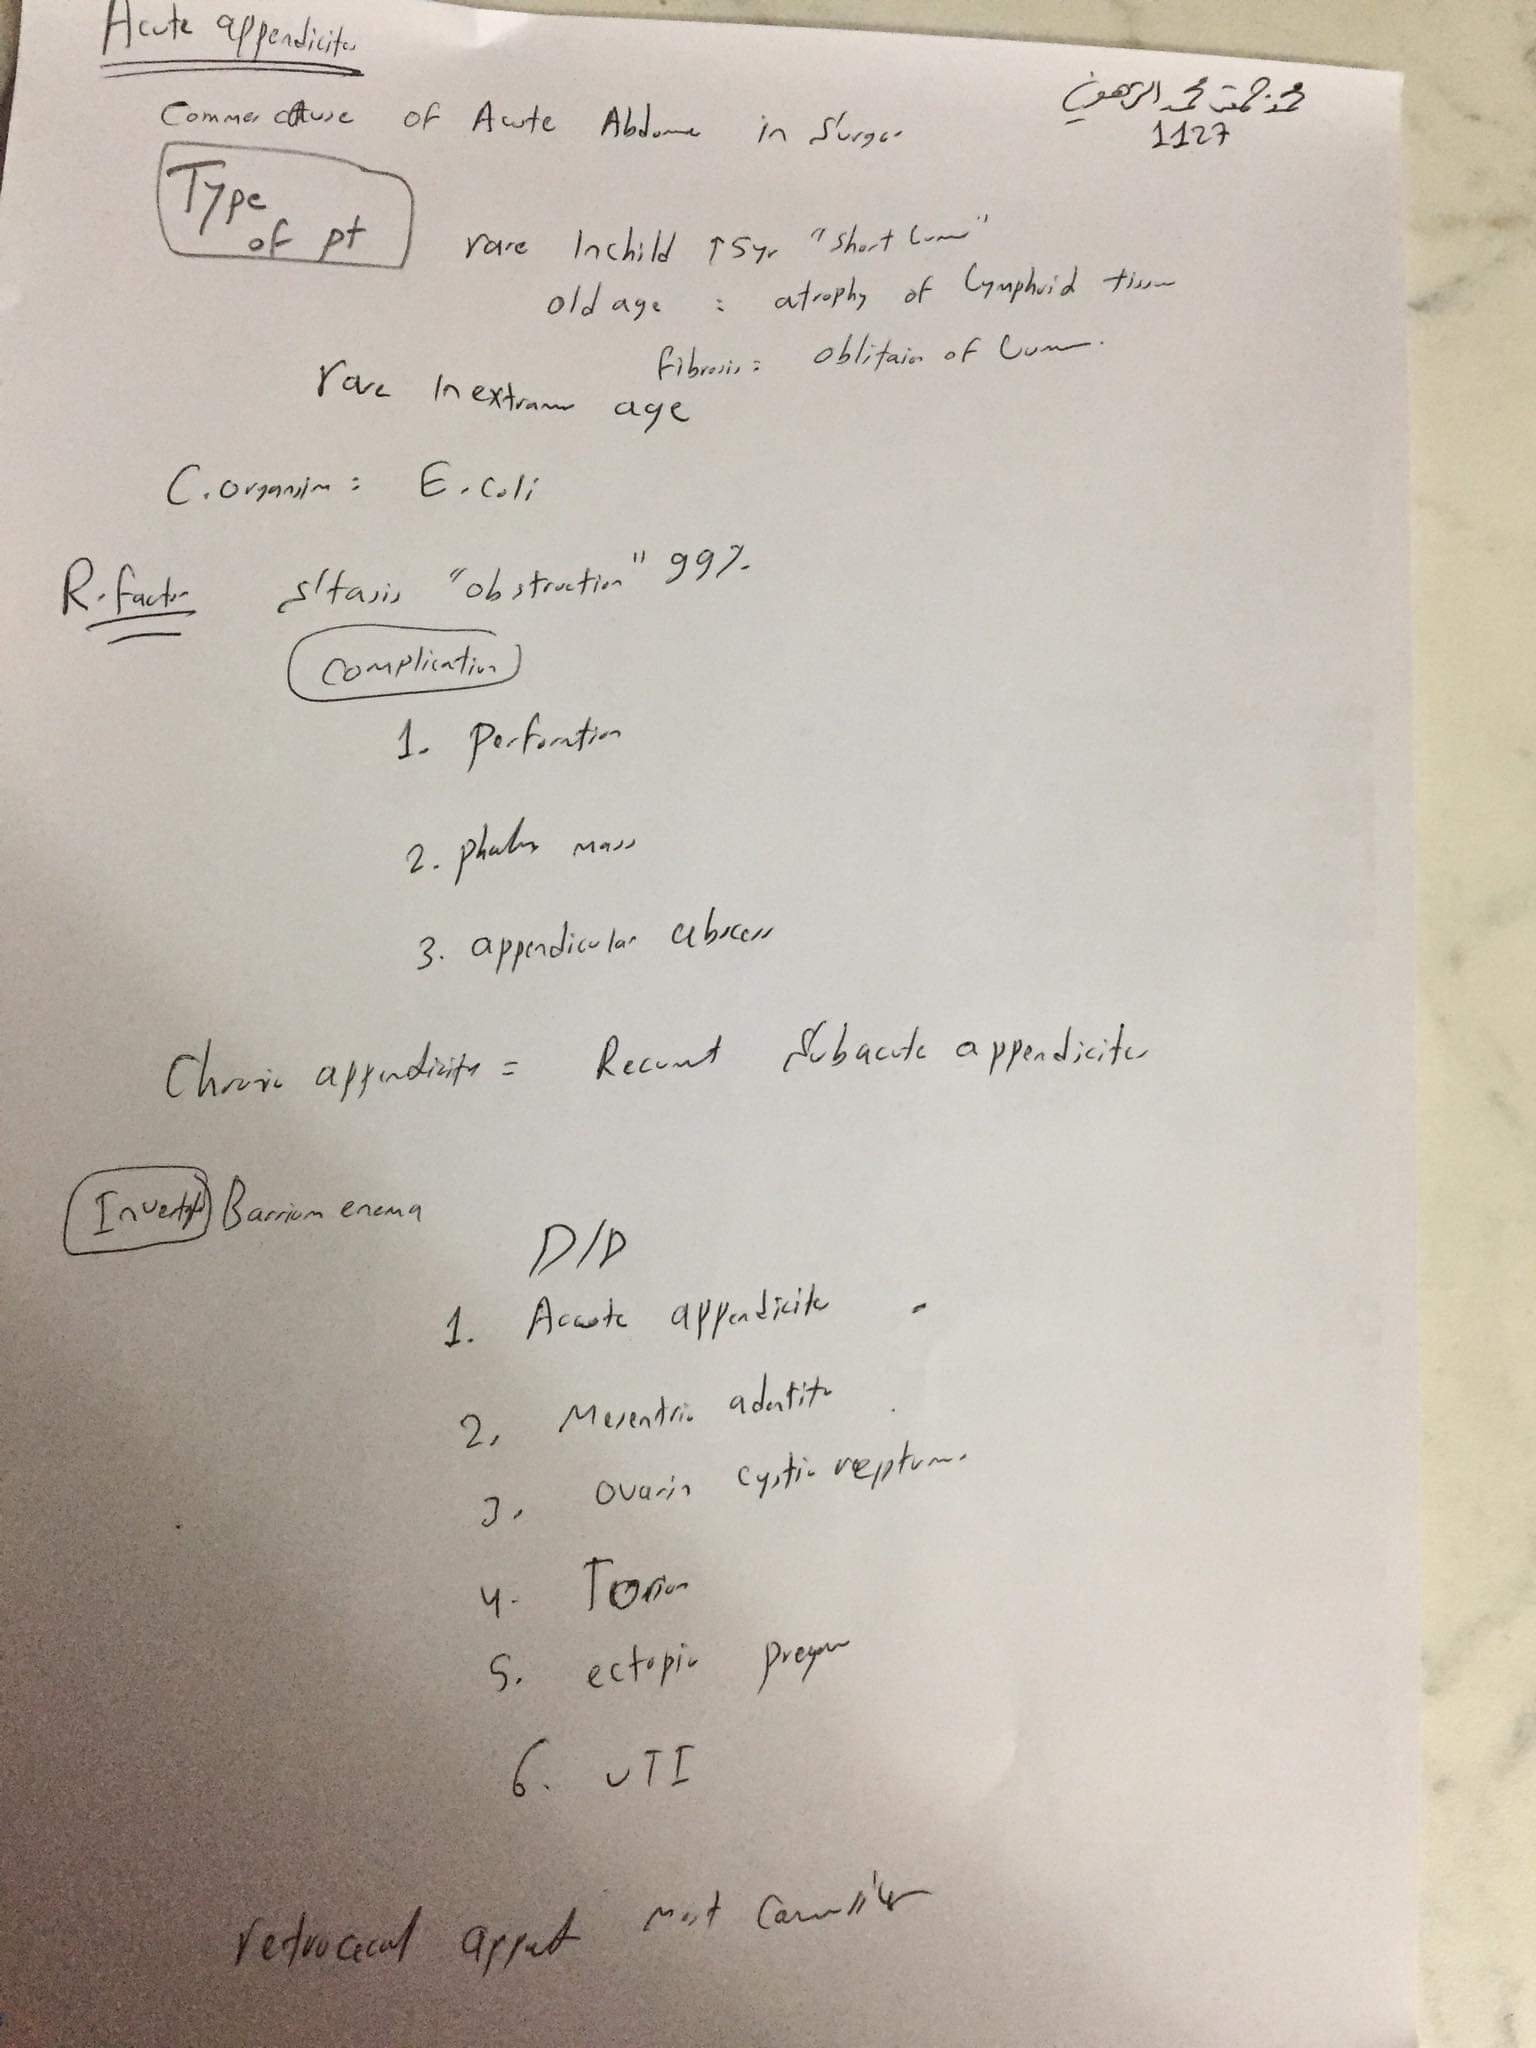 Acute appendicites
Common Cause of Acute Abdome in Surger
1127
Type
of pt
rare In child ↑ 5yr "short lume"
old age : atrophy of lymphoid tissue
fibrosis : oblitain of lume.
rare In extrame age
C. organsim : E. coli
R. factor stasis "obstruction" 99%
Complication
1. Perforation
2. mass
3. appendicular abscess
Chronic appendicites = Recurrent Subacute appendicites
Barrium enema
D/D
1. Accute appendicites
2. Mesentric
3. ovarin cystic
4. Torsion
5. ectopic
6. UTI
retrocecal most